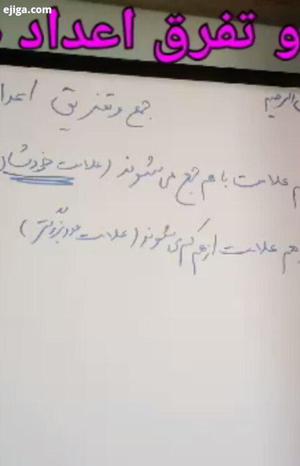 ejiga.com
و تفرق اعداد
الرحیم
جمع و تفریق اعدا
م علامت با هم جمع می شوند (علامت خودشان
هم علامت از هم کم می شوند (علامت عدد بزرگتر)